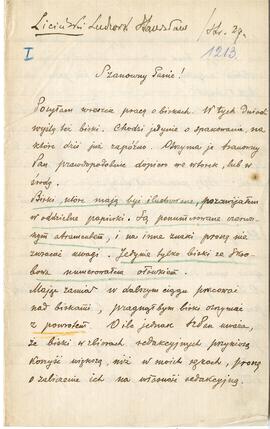 Liciński Ludwik Stanisław
I
1213
Szanowny Panie!
Posyłam wreszcie pracę o birkach. W tych dniach
wyślę też birki. Chodzi jedynie o spakowanie, na
które dziś już zapóźno. Otrzyma je szanowny
Pan prawdopodobnie dopiero we wtorek, lub w
środę.
Birki, które mają być ilustrowane, pozawijałem
w oddzielne papierki. Są ponumerowane czerwo-
nym atramentem, i na inne znaki proszę nie
zwracać uwagi. Jedynie tylko birki ze
numerowałem ołówkiem.
Mając zamiar w dalszym ciągu pracować
nad birkami, pragnąłbym birki otrzymać
z powrotem. O ile jednak uważa,
że birki w zbiorach redakcyjnych przyniosą
korzyść większą, niż w moich rękach, proszę
o zabranie ich na własność redakcyjną.